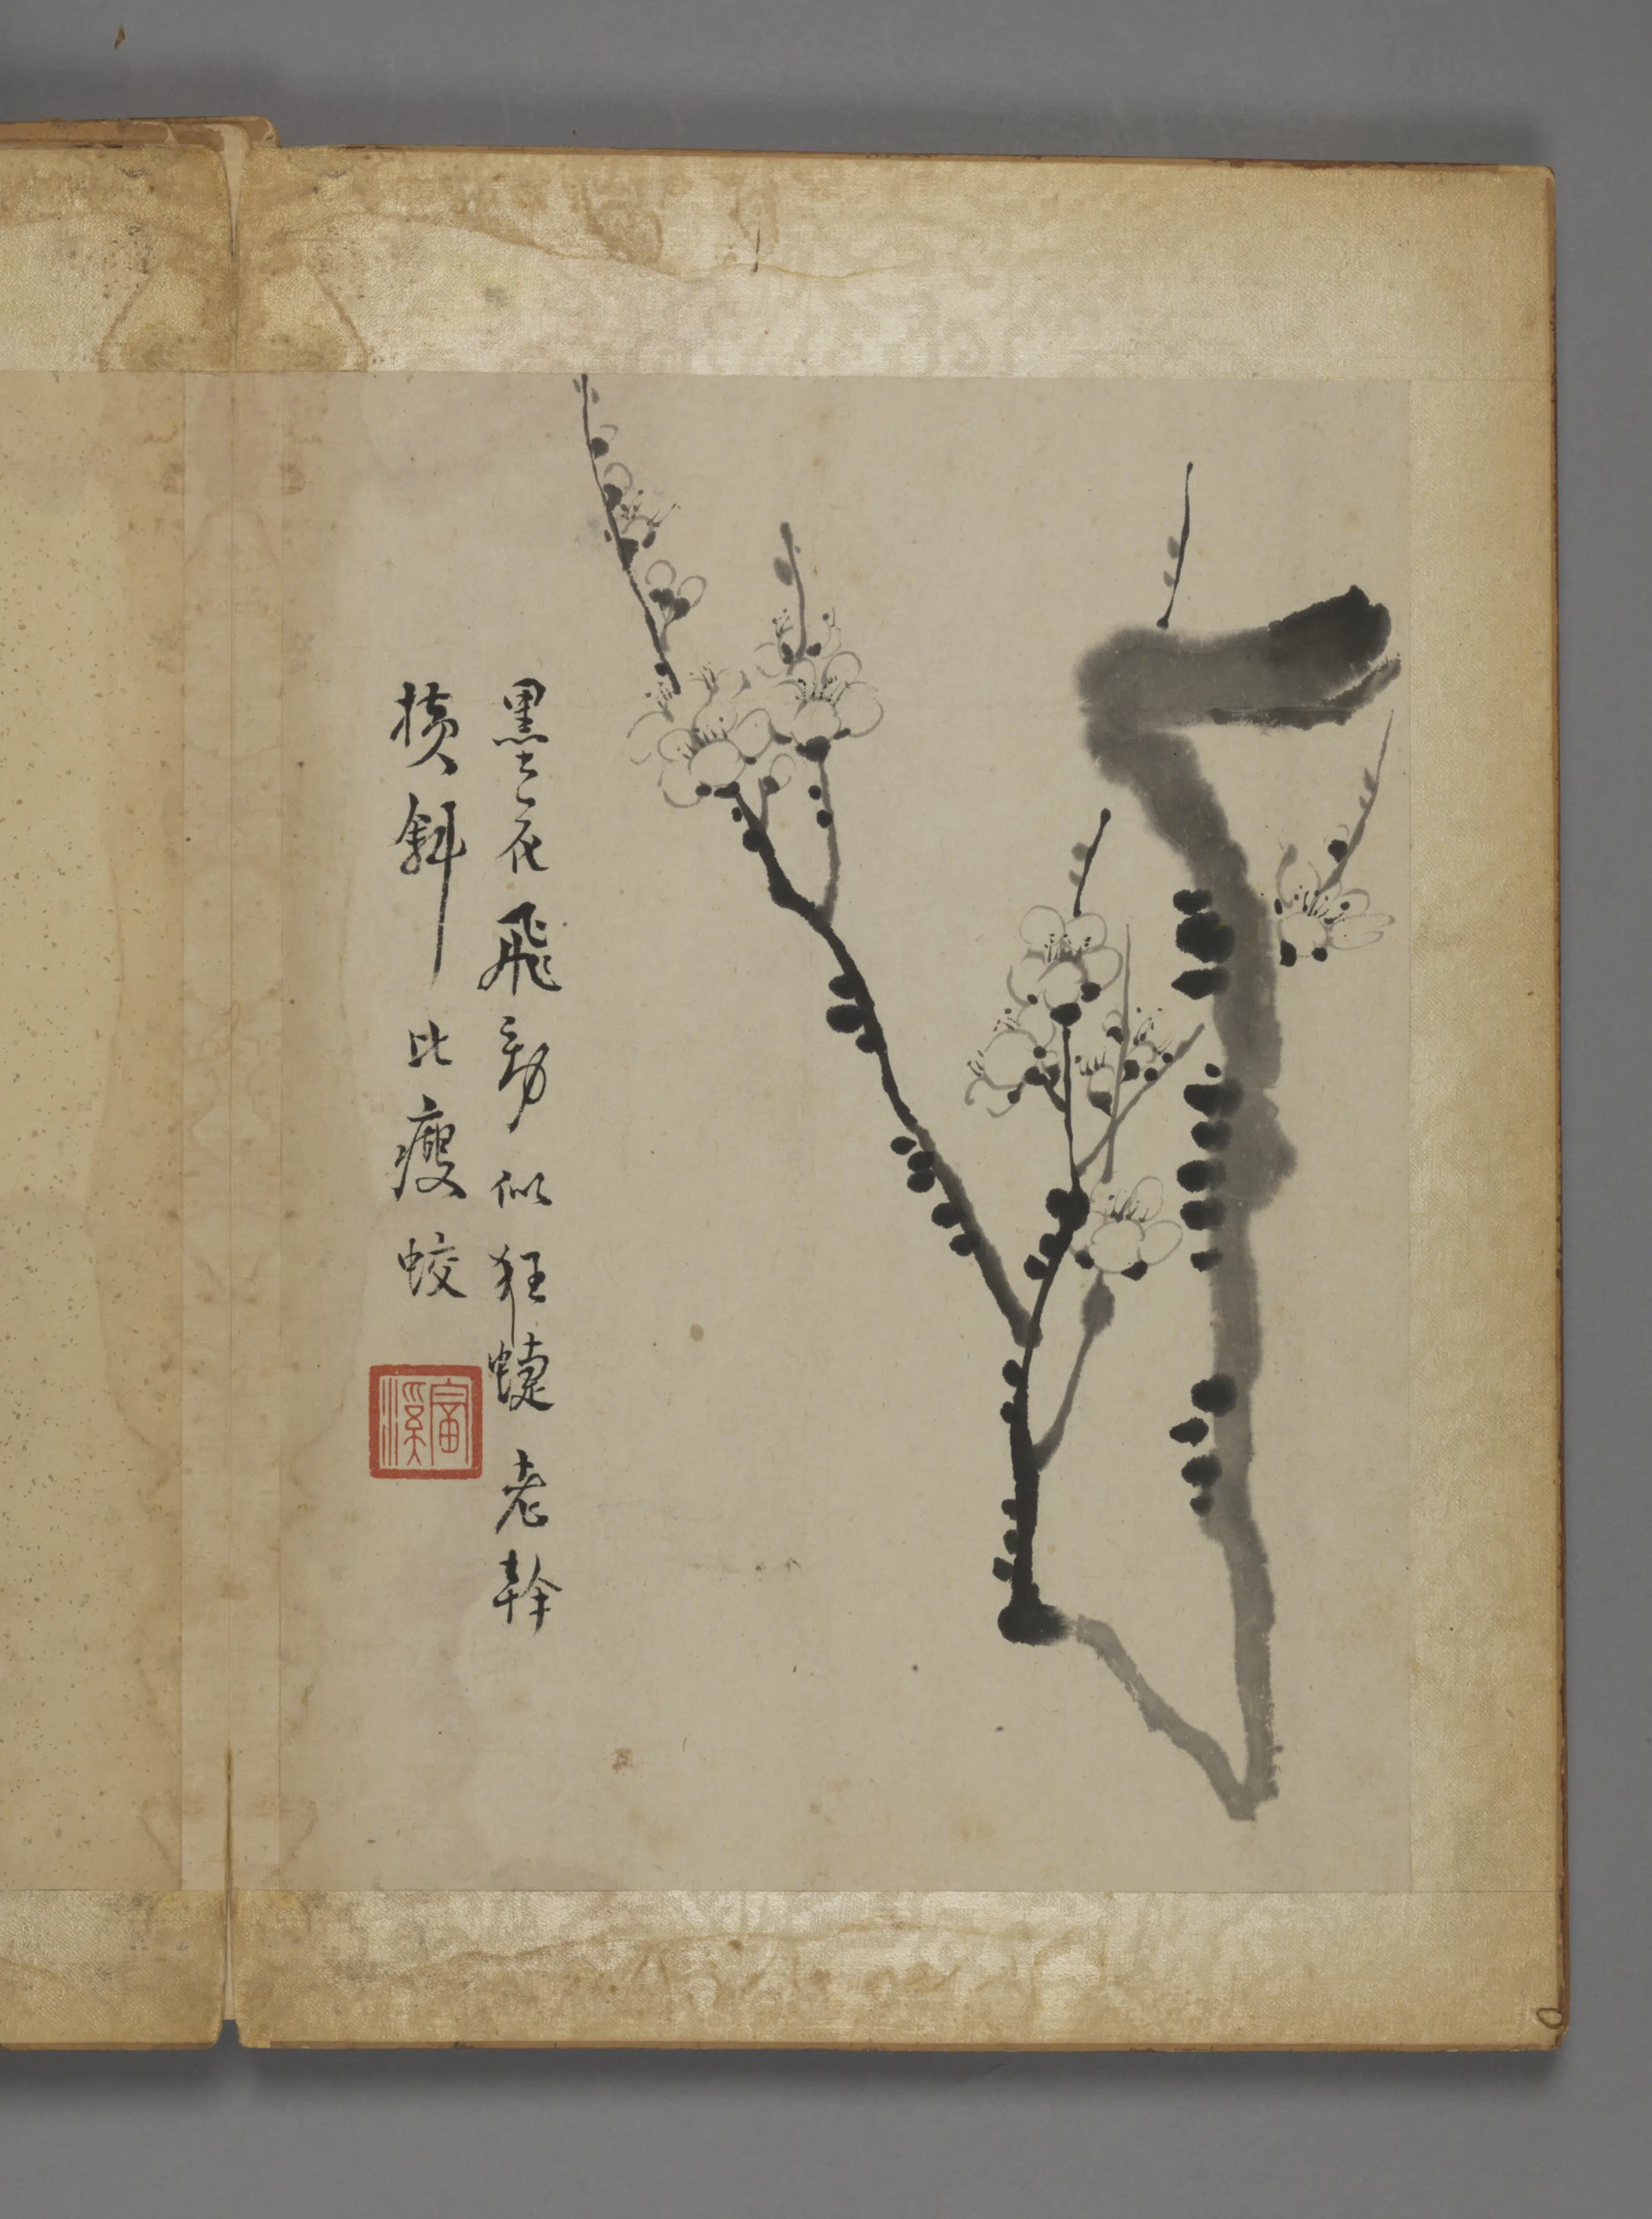 墨花飛動似狂蜨老幹
橫斜比瘦蛟
富溪